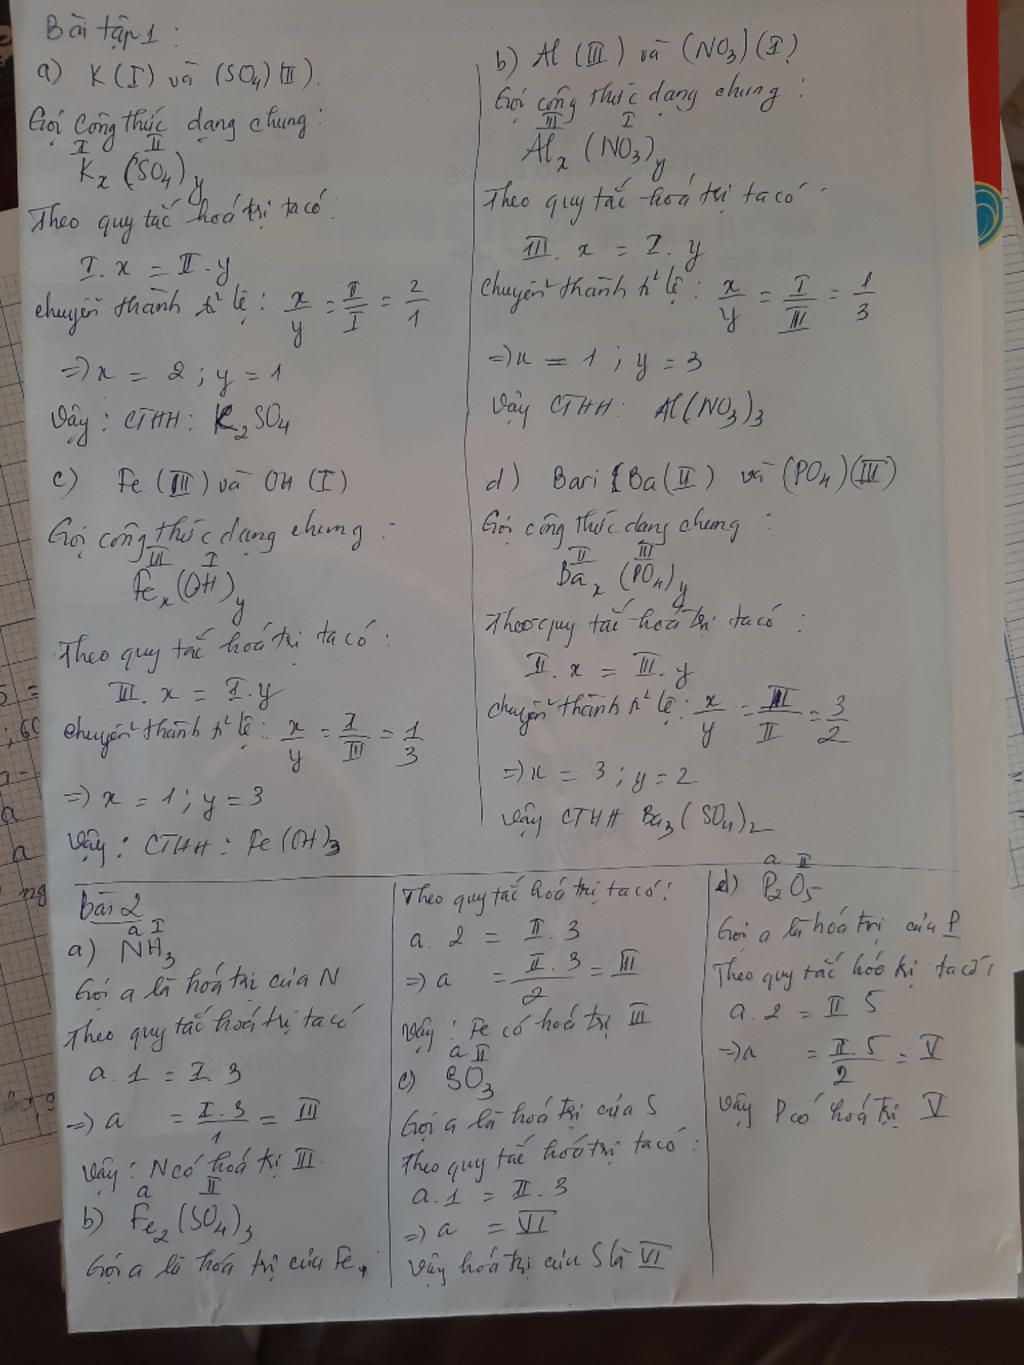 Bài tập 1:
a) K (I) và (SO4) (II).
Gọi công thức dạng chung:
I II
Kx (SO4)y
Theo quy tắc hoá trị ta có:
I. x = II. y
chuyển thành tỉ lệ: x/y = II/I = 2/1
=> x = 2; y = 1
Vậy: CTHH: K2SO4
b) Al (III) và (NO3) (I)
Gọi công thức dạng chung:
III I
Alx (NO3)y
Theo quy tắc hoá trị ta có
III. x = I. y
chuyển thành tỉ lệ: x/y = I/III = 1/3
=> x = 1; y = 3
Vậy CTHH: Al(NO3)3
c) Fe (III) và OH (I)
Gọi công thức dạng chung:
III I
Fex(OH)y
Theo quy tắc hoá trị ta có:
III. x = I. y
chuyển thành tỉ lệ: x/y = I/III = 1/3
=> x = 1; y = 3
Vậy: CTHH: Fe(OH)3
d) Bari Ba(II) và (PO4)(III)
Gọi công thức dạng chung:
II III
Bax (PO4)y
Theo quy tắc hoá trị ta có:
II. x = III. y
chuyển thành tỉ lệ: x/y = III/II = 3/2
=> x = 3; y = 2
Vậy CTHH Ba3(SO4)2
Bài 2
a I
a) NH3
Gọi a là hoá trị của N
Theo quy tắc hoá trị ta có
a. 1 = I. 3
=> a = I. 3/1 = III
Vậy: N có hoá trị III.
a II
b) Fe2(SO4)3
Gọi a là hoá trị của Fe.
Theo quy tắc hoá trị ta có:
a. 2 = II. 3
=> a = II. 3/2 = III
Vậy: Fe có hoá trị III
a II
c) SO3
Gọi a là hoá trị của S
Theo quy tắc hoá trị ta có:
a. 1 = II. 3
=> a = VI
Vậy hoá trị của S là VI
a II
d) P2O5
Gọi a là hoá trị của P
Theo quy tắc hóa trị ta có:
a. 2 = II 5
=> a = II. 5/2 = V
Vậy P có hoá trị V